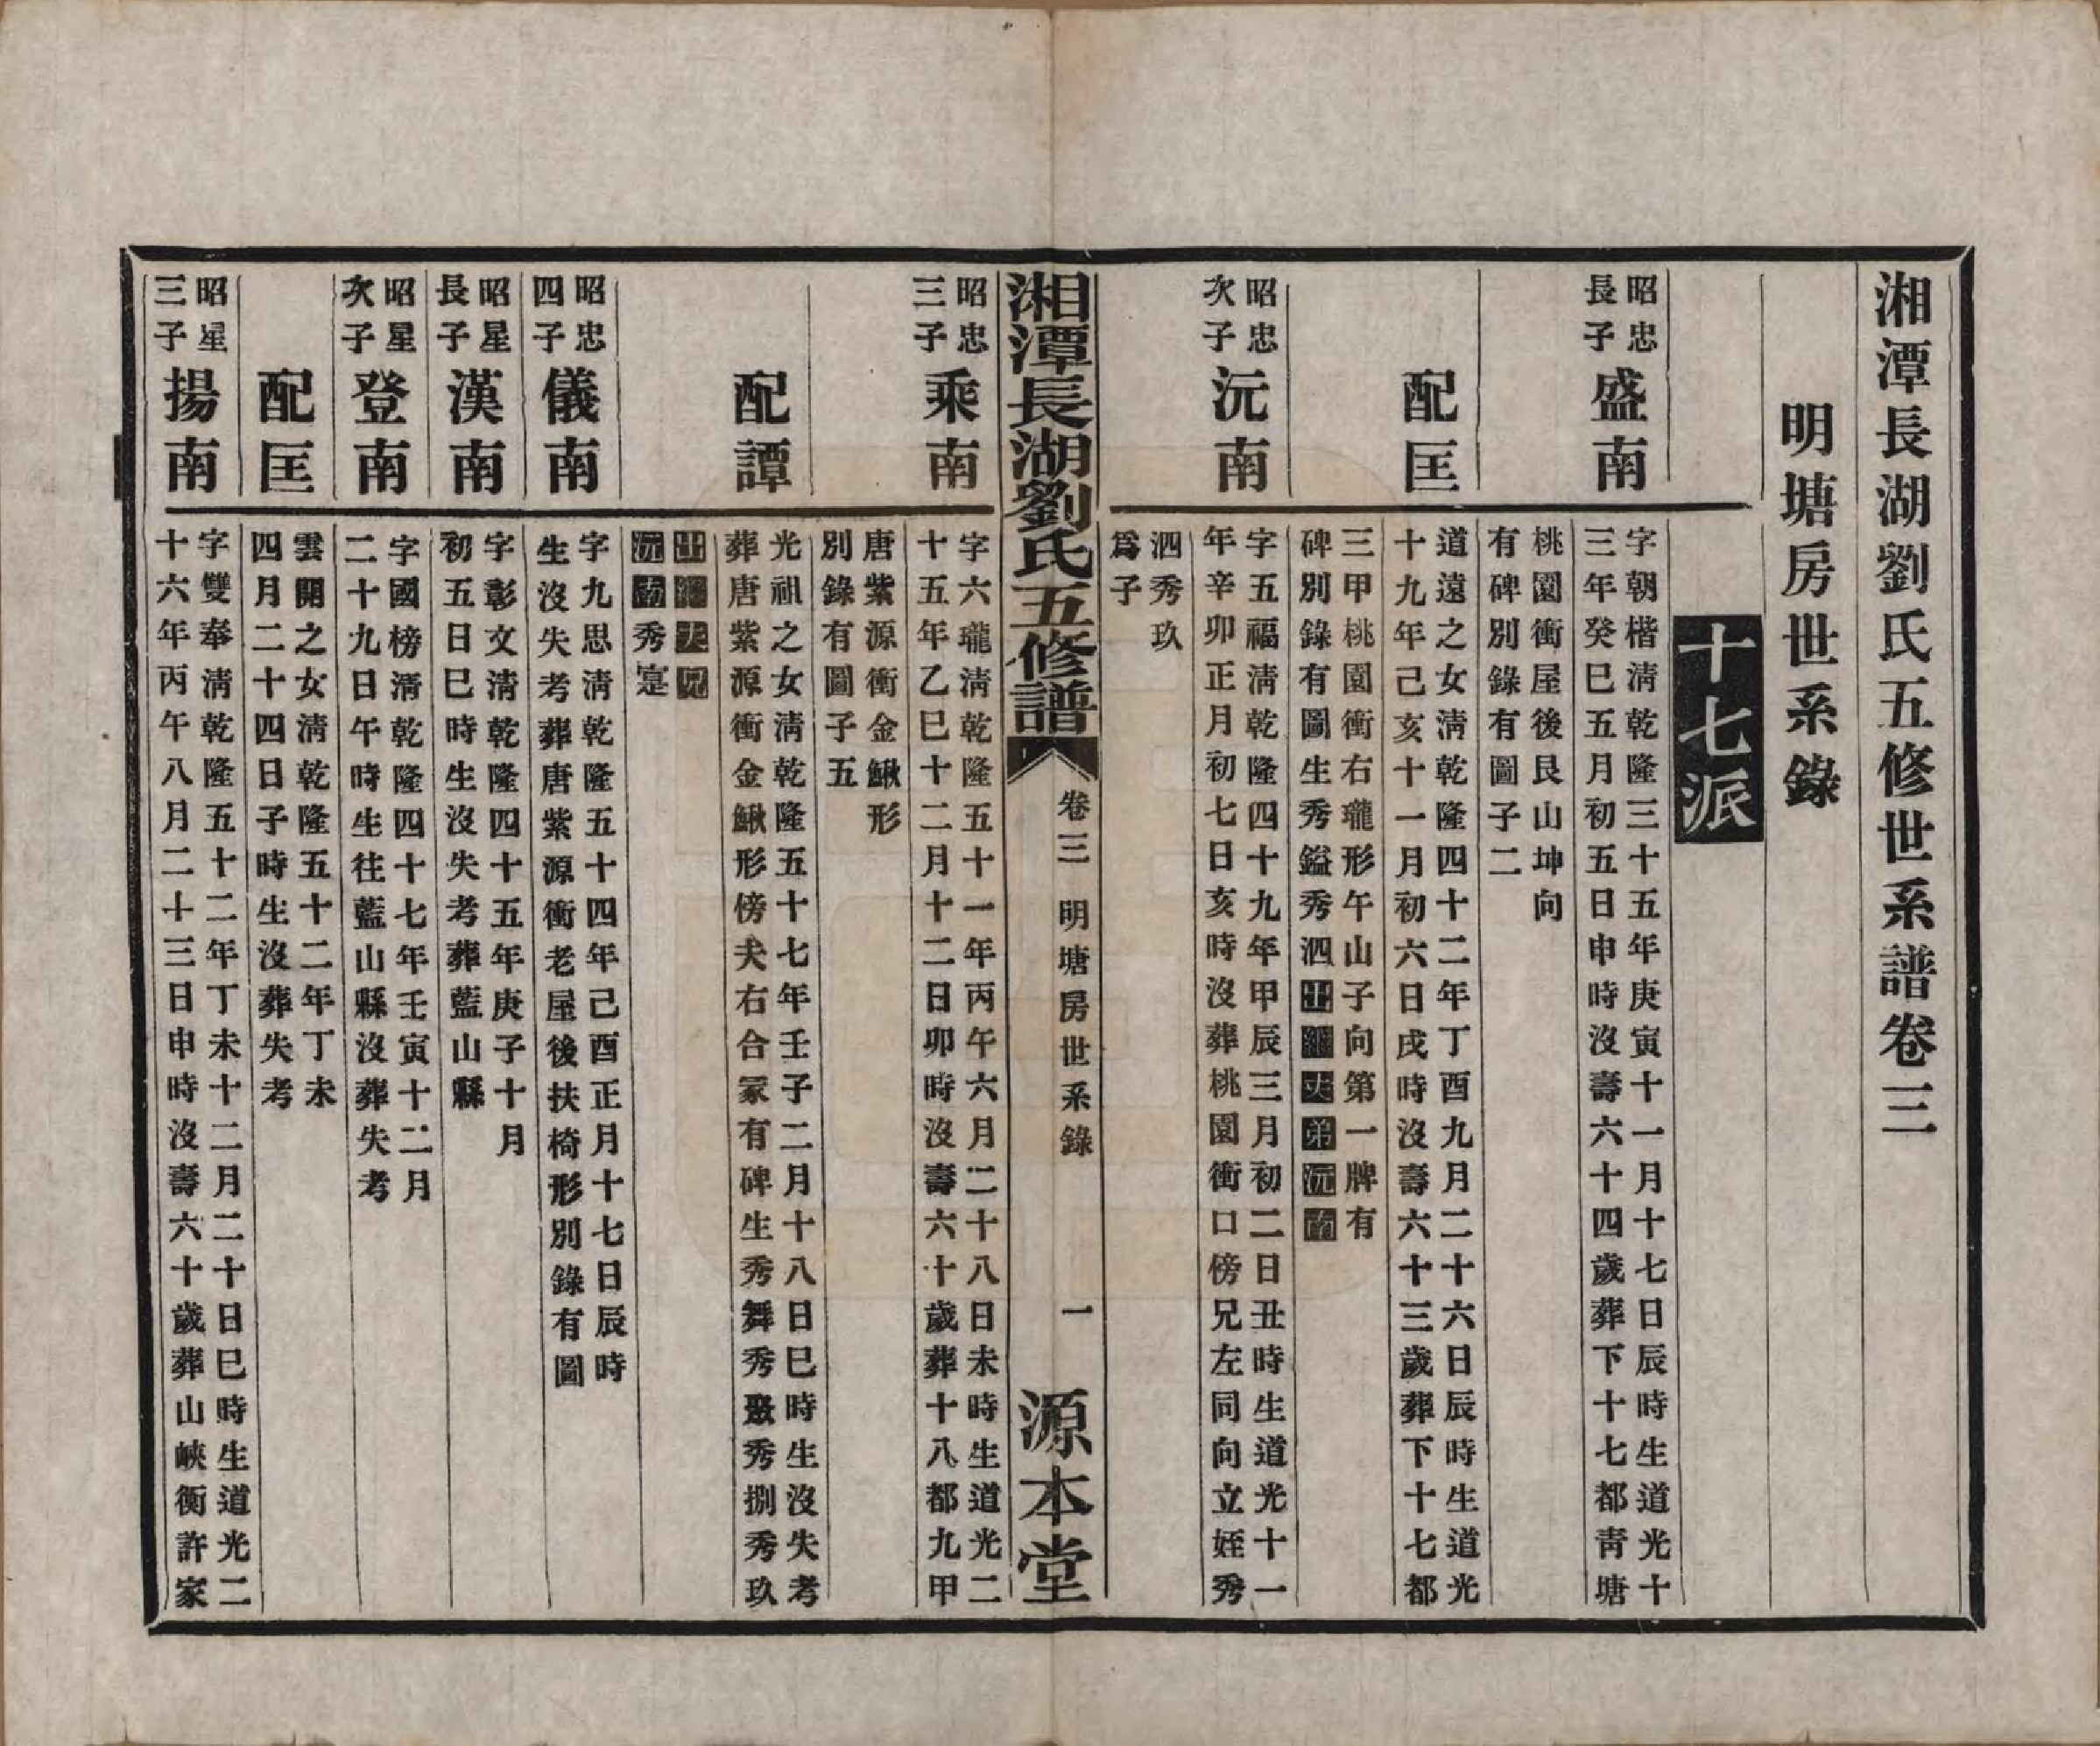 湘潭長湖劉氏五修世系譜卷三
明塘房世系錄
十七派
昭忠
長子
盛南
字朝楷淸乾隆三十五年庚寅十一月十七日辰時生道光十
三年癸巳五月初五日申時沒壽六十四歲葬下十七都靑塘
桃園衝屋後艮山坤向
有碑別錄有圖子二
配匡
道遠之女淸乾隆四十二年丁酉九月二十六日辰時生道光
十九年己亥十一月初六日戌時沒壽六十三歲葬下十七都
三甲桃園衝右瓏形午山子向第一牌有
碑別錄有圖生秀鎰秀泗出繼夫弟沅南
昭忠
次子
沅南
字五福淸乾隆四十九年甲辰三月初二日丑時生道光十一
年辛卯正月初七日亥時沒葬桃園衝口傍兄左同向立姪秀
泗秀玖
爲子
湘潭長湖劉氏五修譜
卷三 明塘房世系錄
一
源本堂
昭忠
三子
乘南
字六瓏淸乾隆五十一年丙午六月二十八日未時生道光二
十五年乙巳十二月十二日卯時沒壽六十歲葬十八都九甲
唐紫源衝金鰍形
別錄有圖子五
配譚
光祖之女淸乾隆五十七年壬子二月十八日巳時生沒失考
葬唐紫源衝金鰍形傍夫右合冢有碑生秀舞秀鼗秀捌秀玖
出繼夫兄
沅南秀寔
昭忠
四子
儀南
字九思淸乾隆五十四年己酉正月十七日辰時
生沒失考葬唐紫源衝老屋後扶椅形別錄有圖
昭星
長子
漢南
字彰文淸乾隆四十五年庚子十月
初五日巳時生沒失考葬藍山縣
昭星
次子
登南
字國榜淸乾隆四十七年壬寅十二月
二十九日午時生往藍山縣沒葬失考
配匡
雲開之女淸乾隆五十二年丁未
四月二十四日子時生沒葬失考
昭星
三子
揚南
字雙奉淸乾隆五十二年丁未十二月二十日巳時生道光二
十六年丙午八月二十三日申時沒壽六十歲葬山峽衝許家